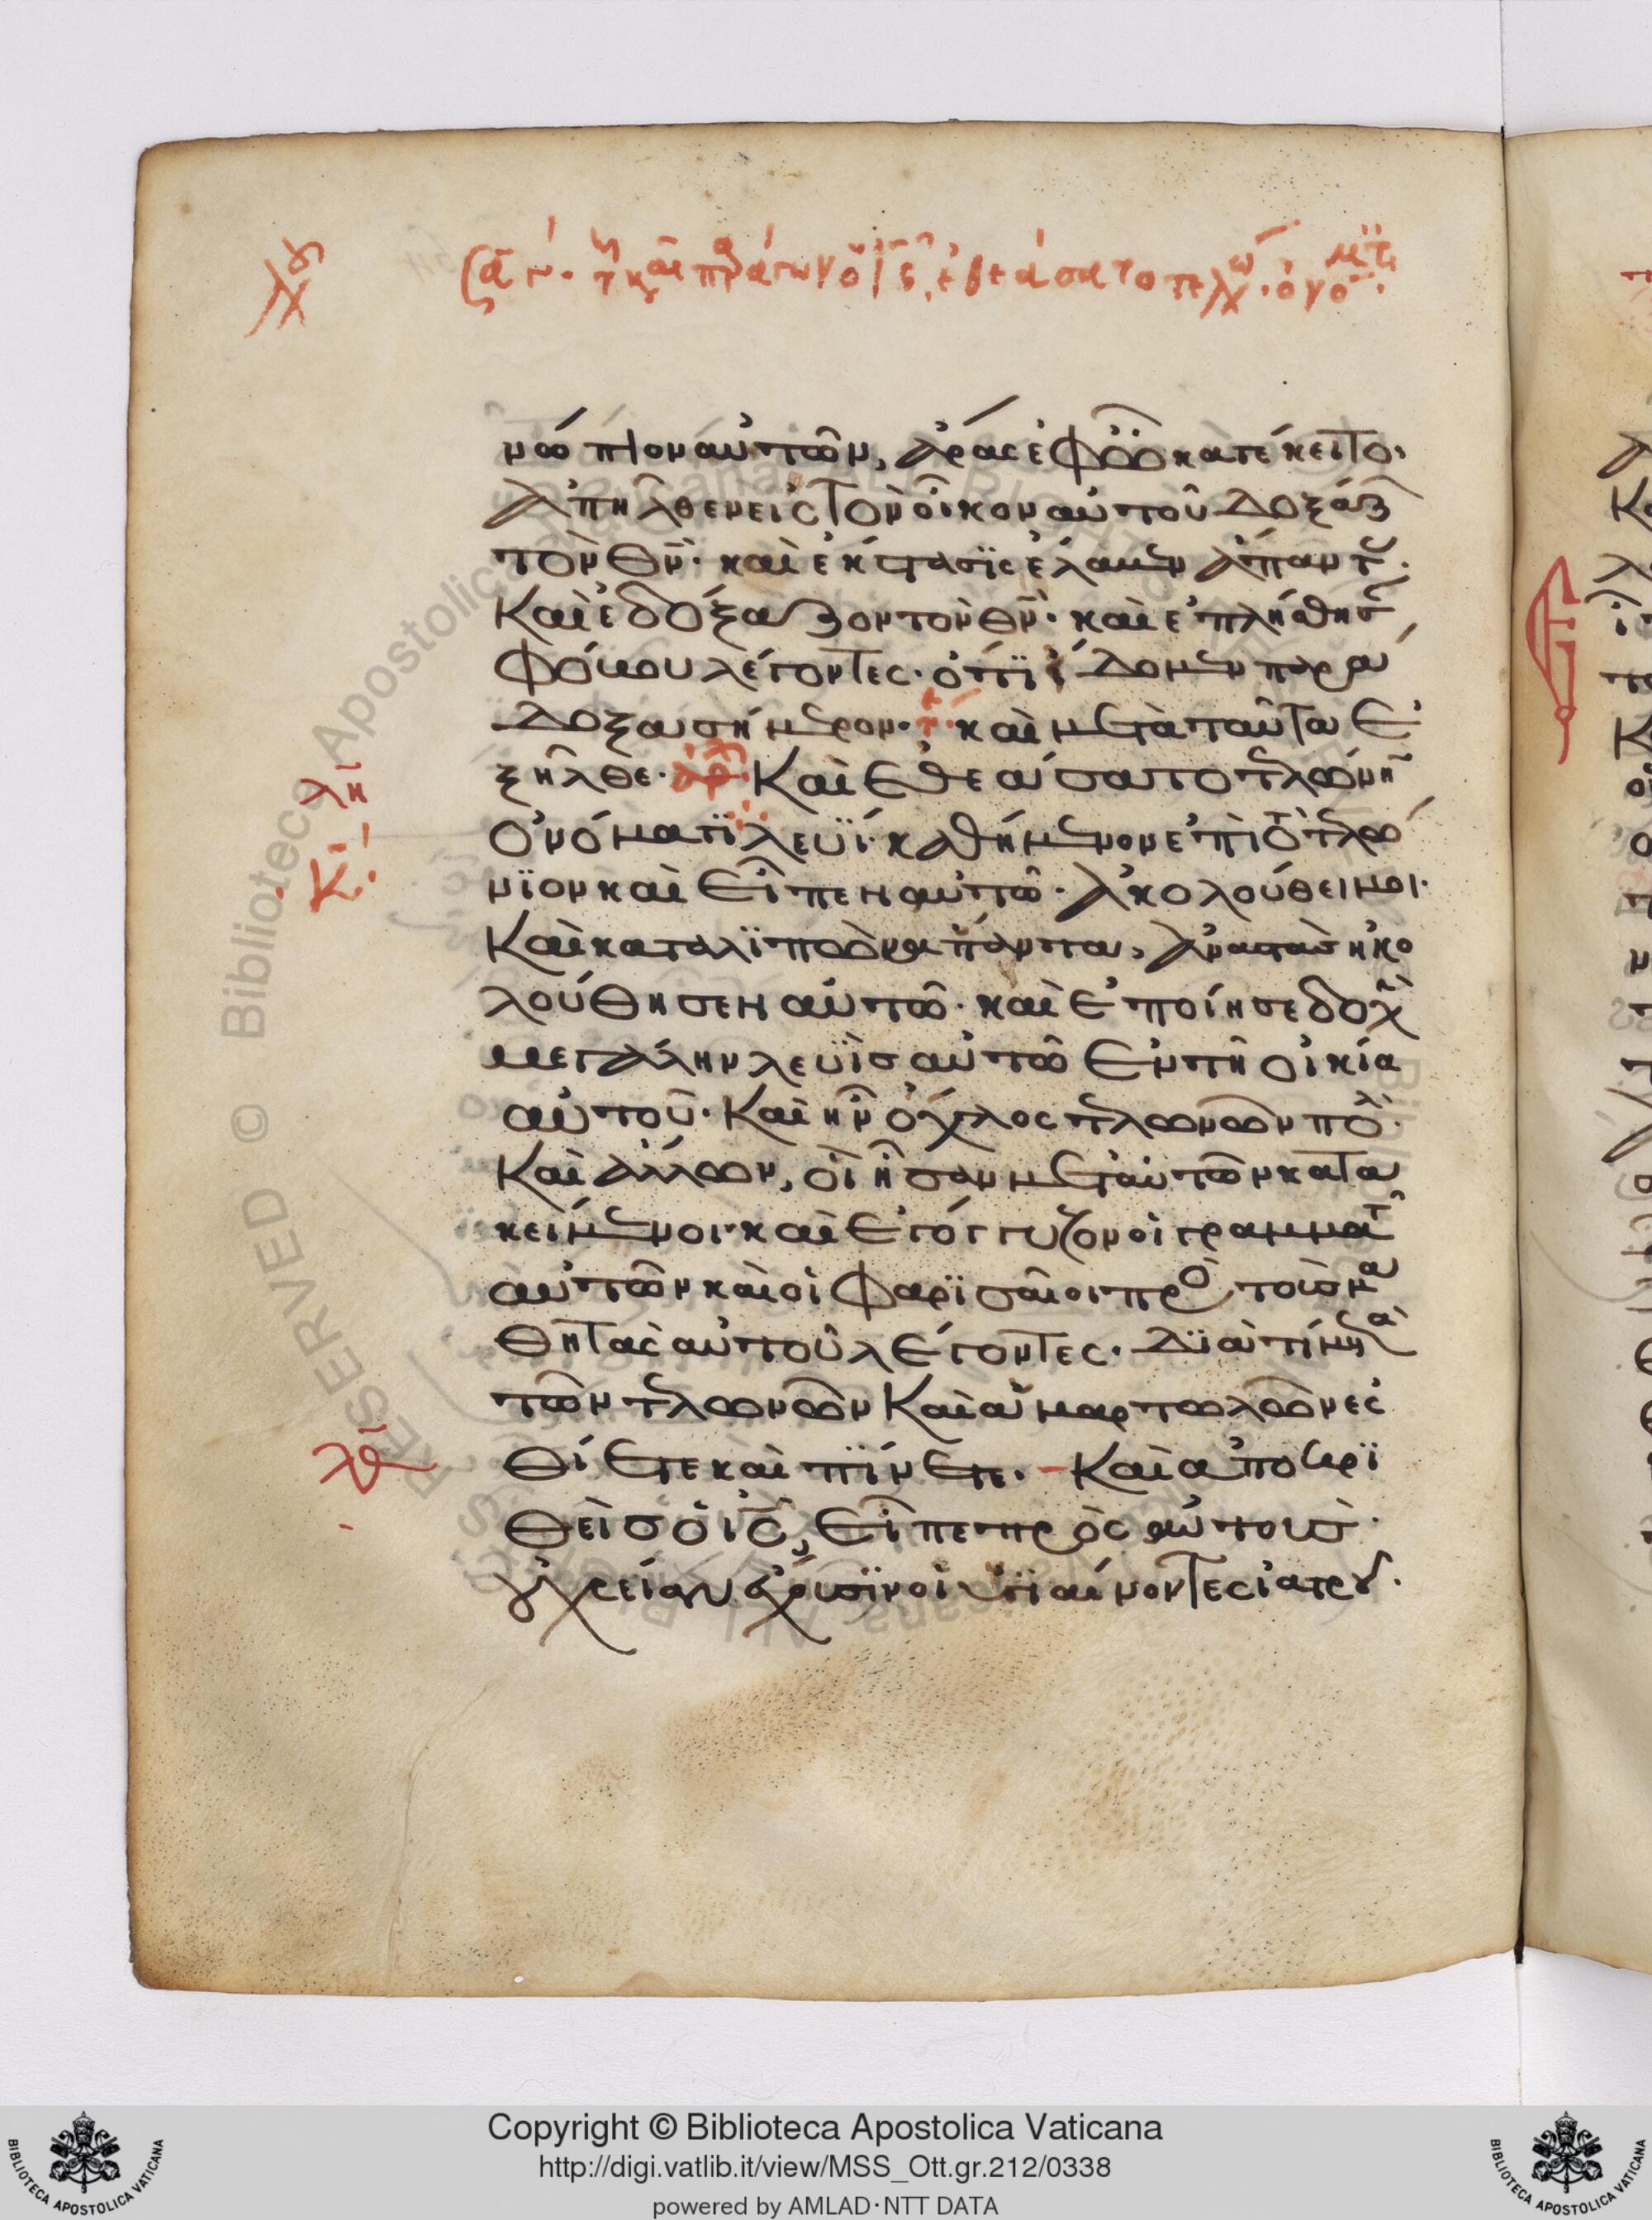 νώπιον αὐτῶν, ἄρας ἐφ ὃ κατέκειτο·
ἀπῆλθεν εἰς τὸν οἶκον αὐτοῦ δοξάζ
τὸν θν· καὶ ἔκστασϊς ἔλαβεν ἅπαντ
καὶ ἐδόξαζον τὸν θν· καὶ ἐπλήσθησ
φόβου λέγοντες· ὅτϊ εἴδομεν παρά
δοξα σήμερον· τε καὶ μετὰ ταῦτα ἐ
ξῆλθε· ἀρχ καὶ ἐθεάσατο τελώνην
ὀνόματϊ λευΐ· καθήμενον ἐπὶ τὸ τελώ
νϊον καὶ εἶπεν αὐτῶ· ἀκολούθει μοι·
λη
κ
καὶ καταλϊπὼν ἅπαντα, ἀναστὰς ἠκο
λούθησεν αὐτῶ· καὶ ἐποίησε δοχὴ
μεγάλην λευῒς αὐτῶ ἐν τῆ οἰκία
αὐτοῦ· καὶ ἦν ὄχλος τελωνῶν πολ
καὶ ἄλλων, οἳ ἦσαν μετ αὐτῶν κατα
κείμενοι· καὶ ἐγόγγυζον οἱ γραμματ
αὐτῶν καὶ οἱ φαρϊσαῖοι πρὸ τοὺς μα
θητὰς αὐτοῦ λέγοντες· δϊατί μετὰ
τῶν τελωνῶν καὶ ἁμαρτωλῶν ἐσ
θίετε καὶ πΐνετε· καὶ ἀποκρϊ
λθ
θεὶς ὁ ις, εἶπε πρὸς αὐτούς·
οὐ χρείαν ἔχουσϊν οἱ ὑγϊαίνοντες ἰατροῦ·
Copyright © Biblioteca Apostolica Vaticana
http://digi.vatlib.it/view/MSS_Ott.gr.212/0338
powered by AMLAD·NTT DATA
BIBLIOTECA APOSTOLICA VATICANA
BIBLIOTECA APOSTOLICA VATICANA